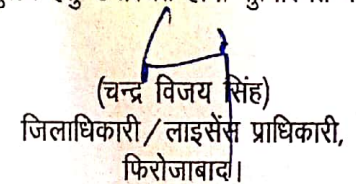 (चन्द्र विजय सिंह)
जिलाधिकारी / लाइसेंस प्राधिकारी,
फिरोजाबाद।